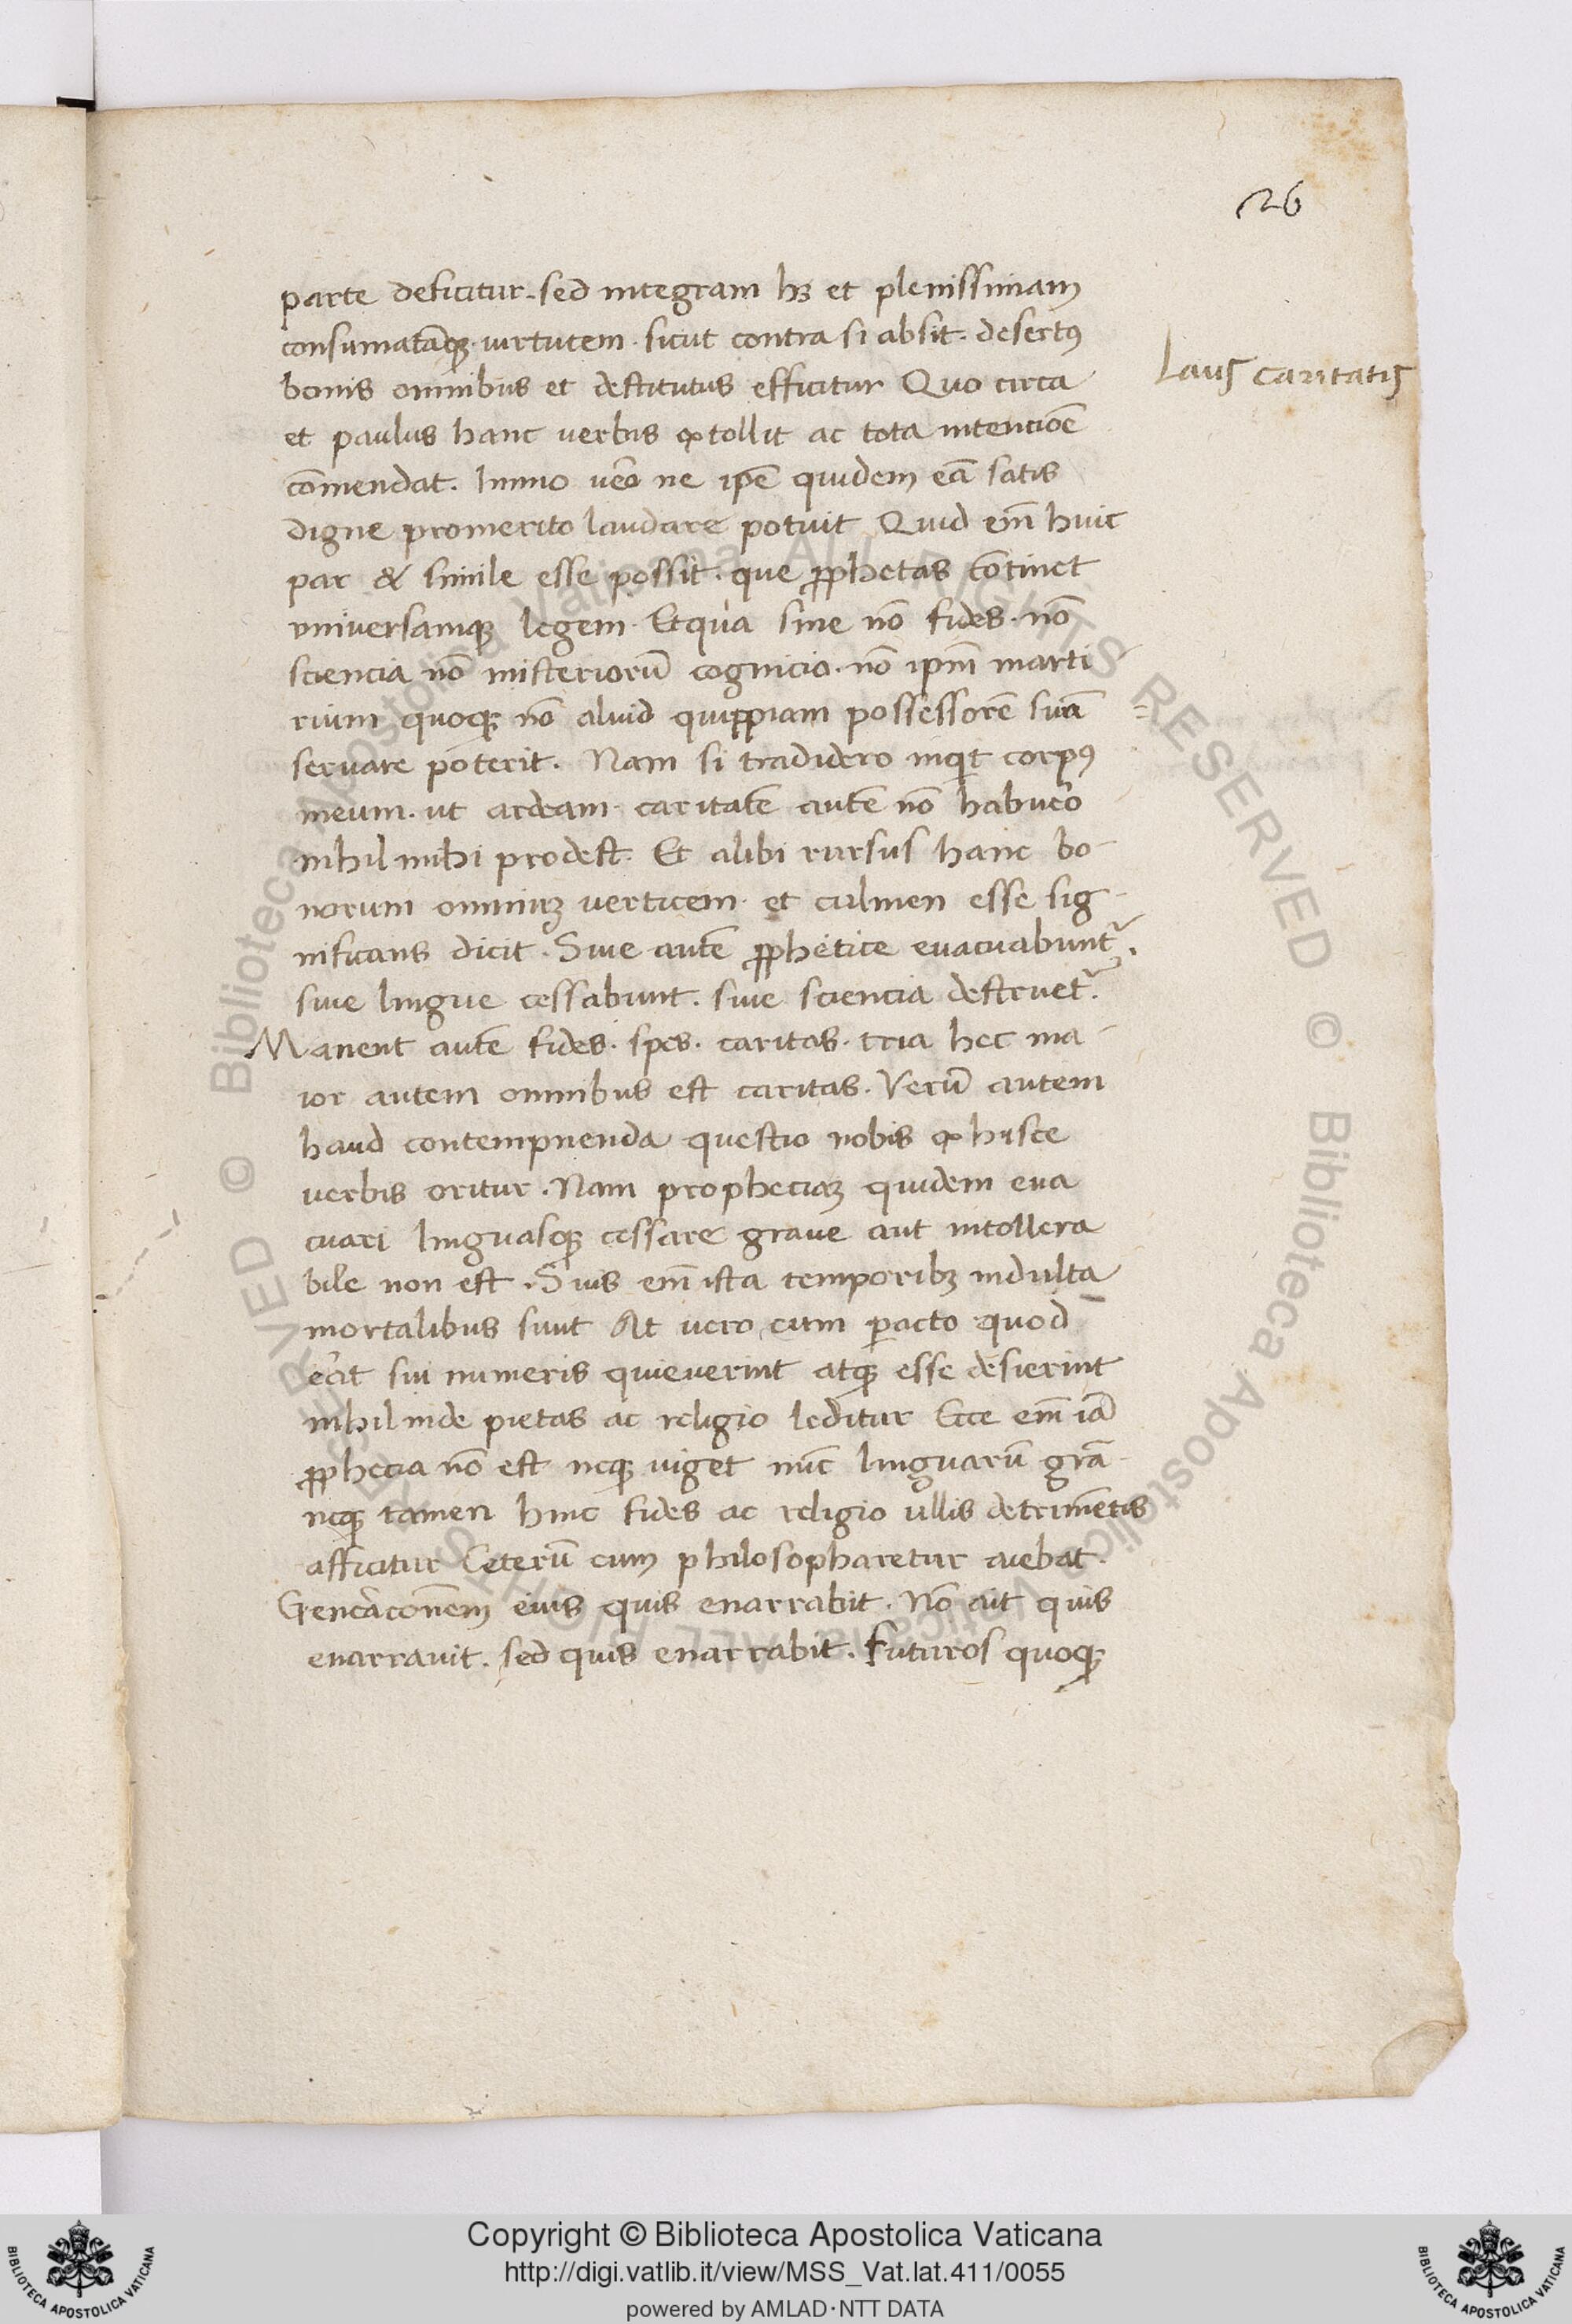 26
parte deficitur. sed integram hꝫ et plenissimam
consumatãqꝫ. uirtutem. sicut contra si absit. desertꝰ
bonis omnibus et destitutus efficitur Quo circa
Laus caritatis
et paulus hanc uerbis extollit ac tota intencioẽ
cõmendat. Immo ueõ ne ipẽ quidem eã satis
digne promerito laudare potuit Quid em̃ huic
par & simile esse possit. que ꝓphetas cõtinet
vniversamqꝫ legem. Et qua sine nõ fides. nõ
sciencia nõ misteriorũ cognicio. nõ ipm̃ marti
rium quoqꝫ nõ aliud quippiam possessorẽ suũ
seruare poterit. Nam si tradidero inqit corpꝰ
meum. ut ardeam. caritatẽ autẽ nõ habuẽo
nihil mihi prodest. Et alibi rursus hanc bo-
norum omniuꝫ verticem. et culmen esse sig-
nificans dicit. Siue autẽ ꝓphetice euacuabunt᷑.
siue lingue cessabunt. siue sciencia destruet᷑.
Manent autẽ fides. spes. caritas. tria hec ma-
ior autem omnibus est caritas. Verũ autem
haud contempnenda questio nobis ex hisce
uerbis oritur. Nam propheciaꝫ quidem eua
cuari linguasqꝫ cessare graue aut intollera
bile non est. Suis em̃ ista temporibꝫ indulta
mortalibus sunt At uero cum ꝑacto quod
eãt sui numeris quieuerint atqꝫ esse desierint
nihil inde pietas ac religio leditur Ecce em̃ iã
ꝓphecia nõ est neqꝫ uiget nũc linguarũ grã
neqꝫ tamen hinc fides ac religio ullis detrimẽtis
afficitur Ceterũ cum philosopharetur aiebat.
Genẽaconẽm eius quis enarrabit. Nõ ait quis
enarrauit. sed quis enarrabit. Futuros quoqꝫ
Copyright © Biblioteca Apostolica Vaticana
http://digi.vatlib.it/view/MSS_Vat.lat.411/0055
powered by AMLAD·NTT DATA